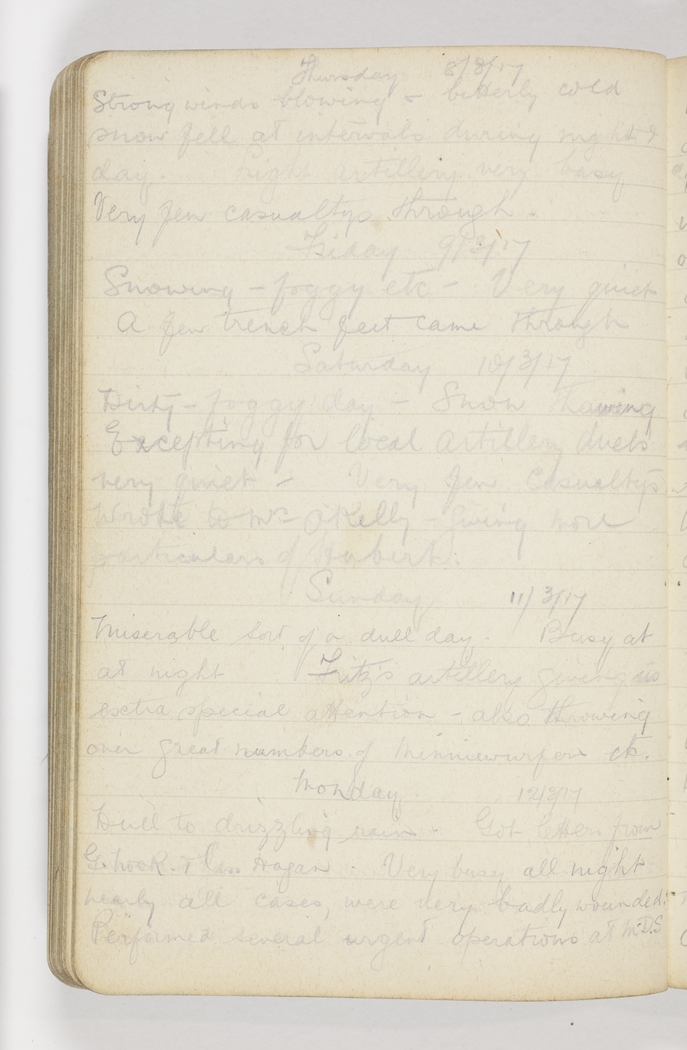 Thursday 8/3/17
Strong winds blowing - bitterly cold
snow fell at intervals during night &
day. Night artillery very busy
Very few casualtys through.
Friday 9/3/17
Snowing - foggy etc - Very quiet
A few trench feet came through
Saturday 10/3/17
Dirty - foggy day - Snow thawing
Excepting for local artillery duels
very quiet - Very few Casualtys
Wrote to Mrs O'Kelly - giving more
particulars of Hubert.
Sunday 11/3/17
Miserable sort of a dull day. Busy at
at night Fritz's artillery giving us
extra special attention - also throwing
over great numbers of Minniewurfers etc.
Monday 12/3/17
Dull to drizzling rain - Got letters from
G. & Hogan - Very busy all night
nearly all cases, were very badly wounded.
Performed several urgent operations at M.D.S